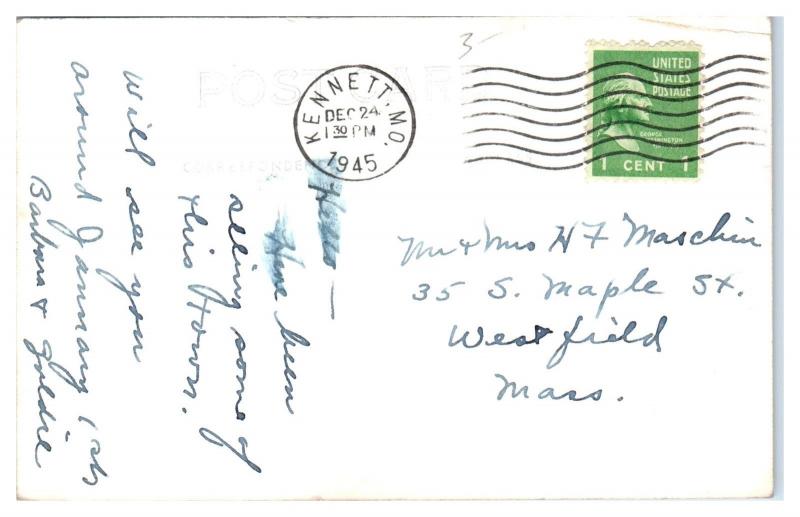 3-
POST CARD
CORRESPONDENCE
KENNETT, MO.
DEC 24
1 30 PM
1945
UNITED
STATES
POSTAGE
GEORGE
WASHINGTON
1 CENT 1
Hello —
Have been
seeing some of
this town.
Will see you
around January 1st
Barbara & Goldie
Mr & Mrs H F Maschin
35 S. Maple St.
Westfield
Mass.